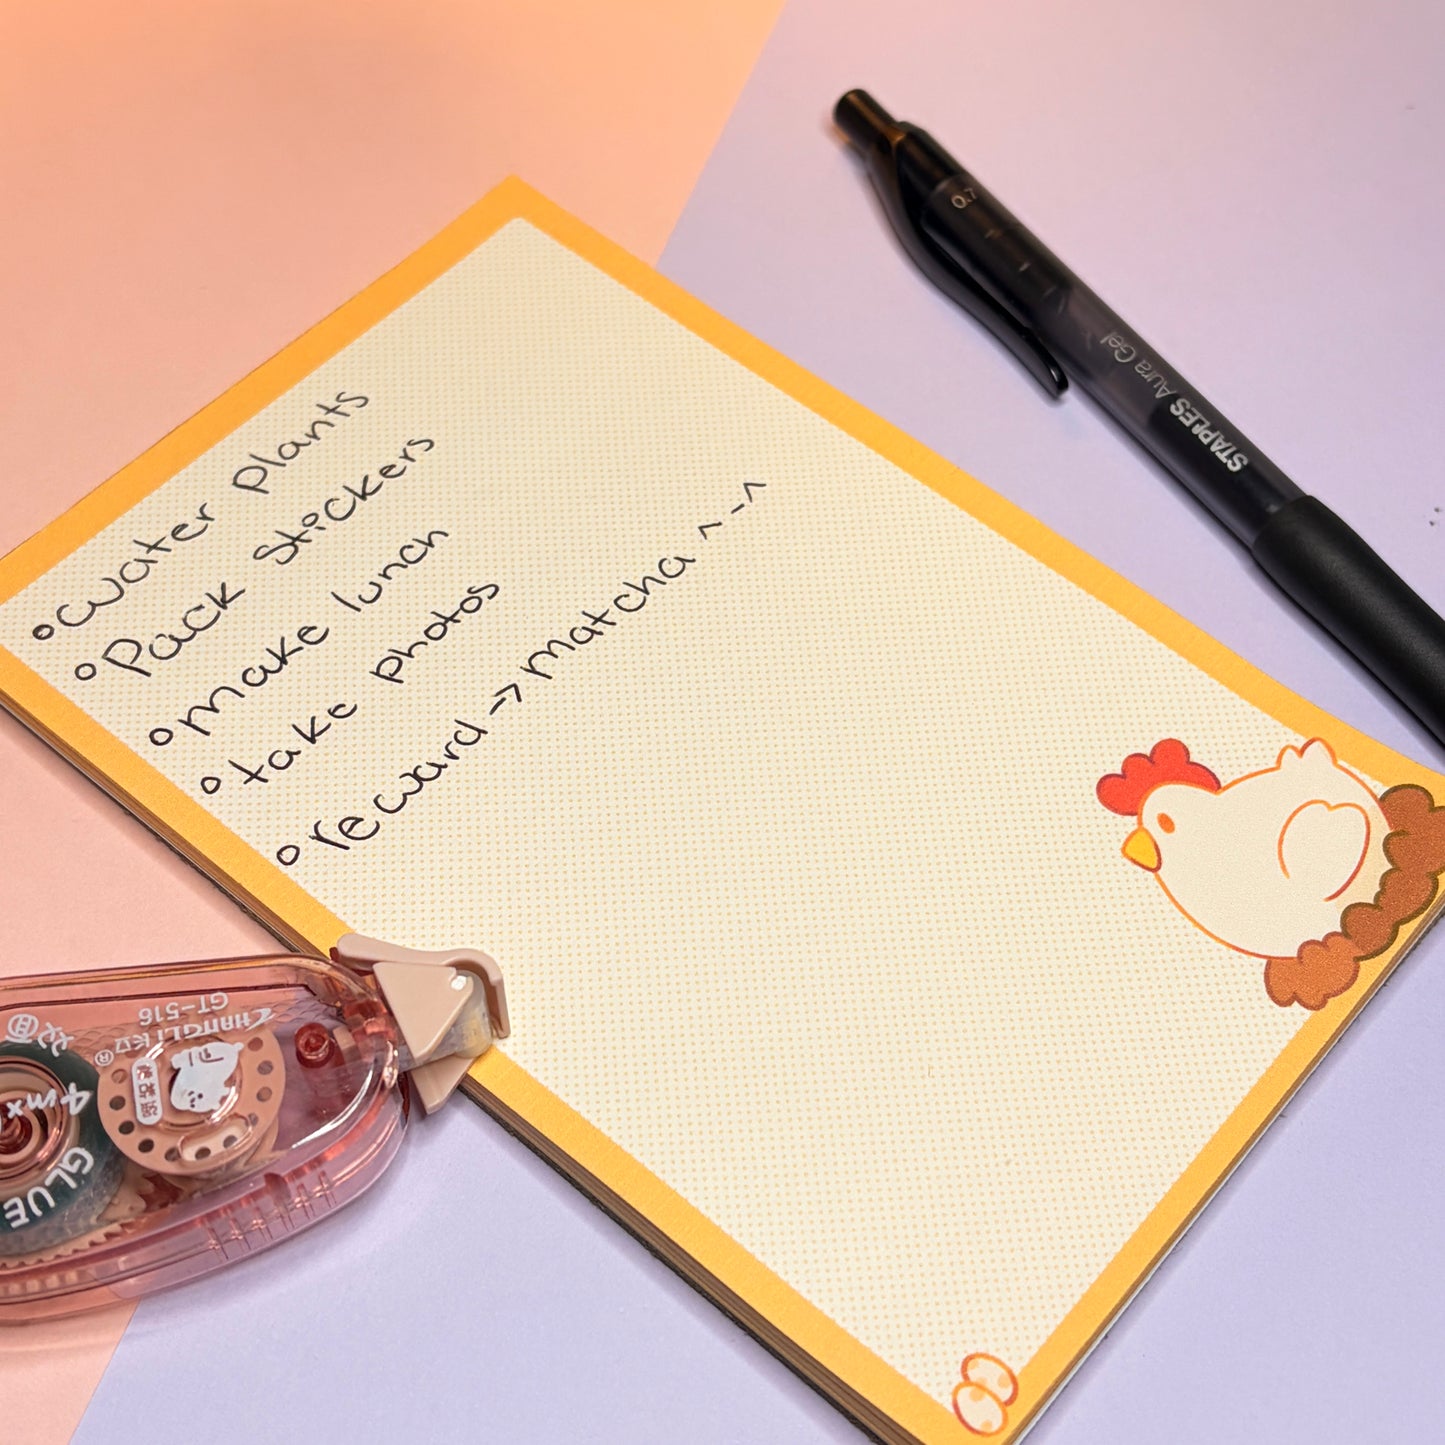 ° water plants
° Pack Stickers
° make lunch
° take photos
° reward -> matcha ^-^
0.7
STAPLES Aura Gel
CHANGLI长立®
GT-516
GLUE